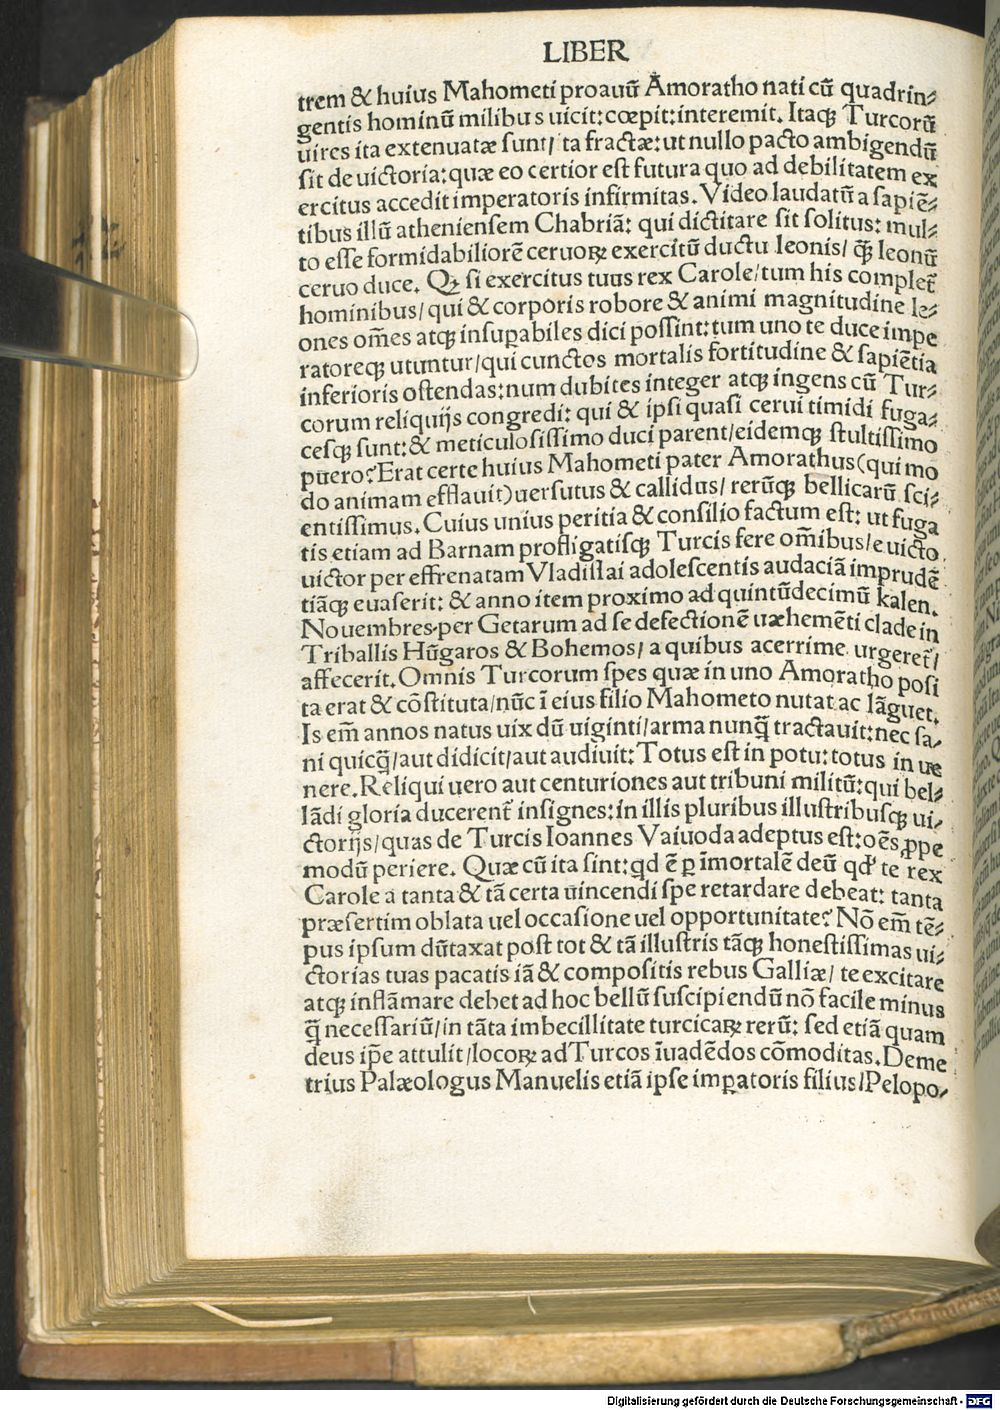 LIBER
trem & huius Mahometi proauū Amoratho nati cū quadrin⸗
gentis hominū milibus uicit: cœpit: interemit. Itaqꝫ Turcorū
uires ita extenuatæ sunt/ ita fractæ: ut nullo pacto ambigendū
sit de uictoria: quæ eo certior est futura quo ad debilitatem ex
ercitus accedit imperatoris infirmitas. Video laudatū a sapiē⸗
tibus illū atheniensem Chabriā: qui dictitare sit solitus: mul⸗
to esse formidabiliorē ceruoꝝ exercitū ductu leonis/ ꝗ̄ leonū
ceruo duce. Qꝫ si exercitus tuus rex Carole/ tum his complet̄
hominibus/ qui & corporis robore & animi magnitudine le⸗
ones om̄es atqꝫ insuꝑabiles dici possint: tum uno te duce impe
ratoreqꝫ utuntur/ qui cunctos mortalis fortitudine & sapiētia
inferioris ostendas: num dubites integer atqꝫ ingens cū Tur⸗
corum reliquijs congredi: qui & ipsi quasi cerui timidi fuga⸗
cesqꝫ sunt: & meticulosissimo duci parent/ eidemqꝫ stultissimo
puero? Erat certe huius Mahometi pater Amorathus (qui mo
do animam efflauit) uersutus & callidus/ rerūqꝫ bellicarū sci⸗
entissimus. Cuius unius peritia & consilio factum est: ut fuga
tis etiam ad Barnam profligatisqꝫ Turcis fere om̄ibus/ e uicto
uictor per effrenatam Vladislai adolescentis audaciā imprudē
tiāqꝫ euaserit: & anno item proximo ad quintūdecimū kalen.
Nouembres per Getarum ad se defectionē uæhemēti clade in
Triballis Hūgaros & Bohemos/ a quibus acerrime urgeret̄/
affecerit. Omnis Turcorum spes quæ in uno Amoratho posi
ta erat & cōstituta/ nūc ī eius filio Mahometo nutat ac lāguet.
Is em̄ annos natus uix dū uiginti/ arma nunꝗ̄ tractauit: nec sa⸗
ni quicꝗ̄/ aut didicit/ aut audiuit: Totus est in potu: totus in ue
nere. Reliqui uero aut centuriones aut tribuni militū: qui bel⸗
lādi gloria ducerent̄ insignes: in illis pluribus illustribusqꝫ ui⸗
ctorijs/ quas de Turcis Ioannes Vaiuoda adeptus est: oēs ꝓpe
modū periere. Quæ cū ita sint: qd ē ꝑ īmortalē deū qd' te rex
Carole a tanta & tā certa uincendi spe retardare debeat: tanta
præsertim oblata uel occasione uel opportunitate? Nō em̄ tē⸗
pus ipsum dūtaxat post tot & tā illustris tāqꝫ honestissimas ui⸗
ctorias tuas pacatis iā & compositis rebus Galliæ/ te excitare
atqꝫ inflāmare debet ad hoc bellū suscipiendū nō facile minus
ꝗ̄ necessariū/ in tāta imbecillitate turcicaꝝ rerū: sed etiā quam
deus ip̄e attulit/ locoꝝ ad Turcos īuadēdos cōmoditas. Deme
trius Palæologus Manuelis etiā ipse imꝑatoris filius/ Pelopo⸗
Digitalisierung gefördert durch die Deutsche Forschungsgemeinschaft - DFG